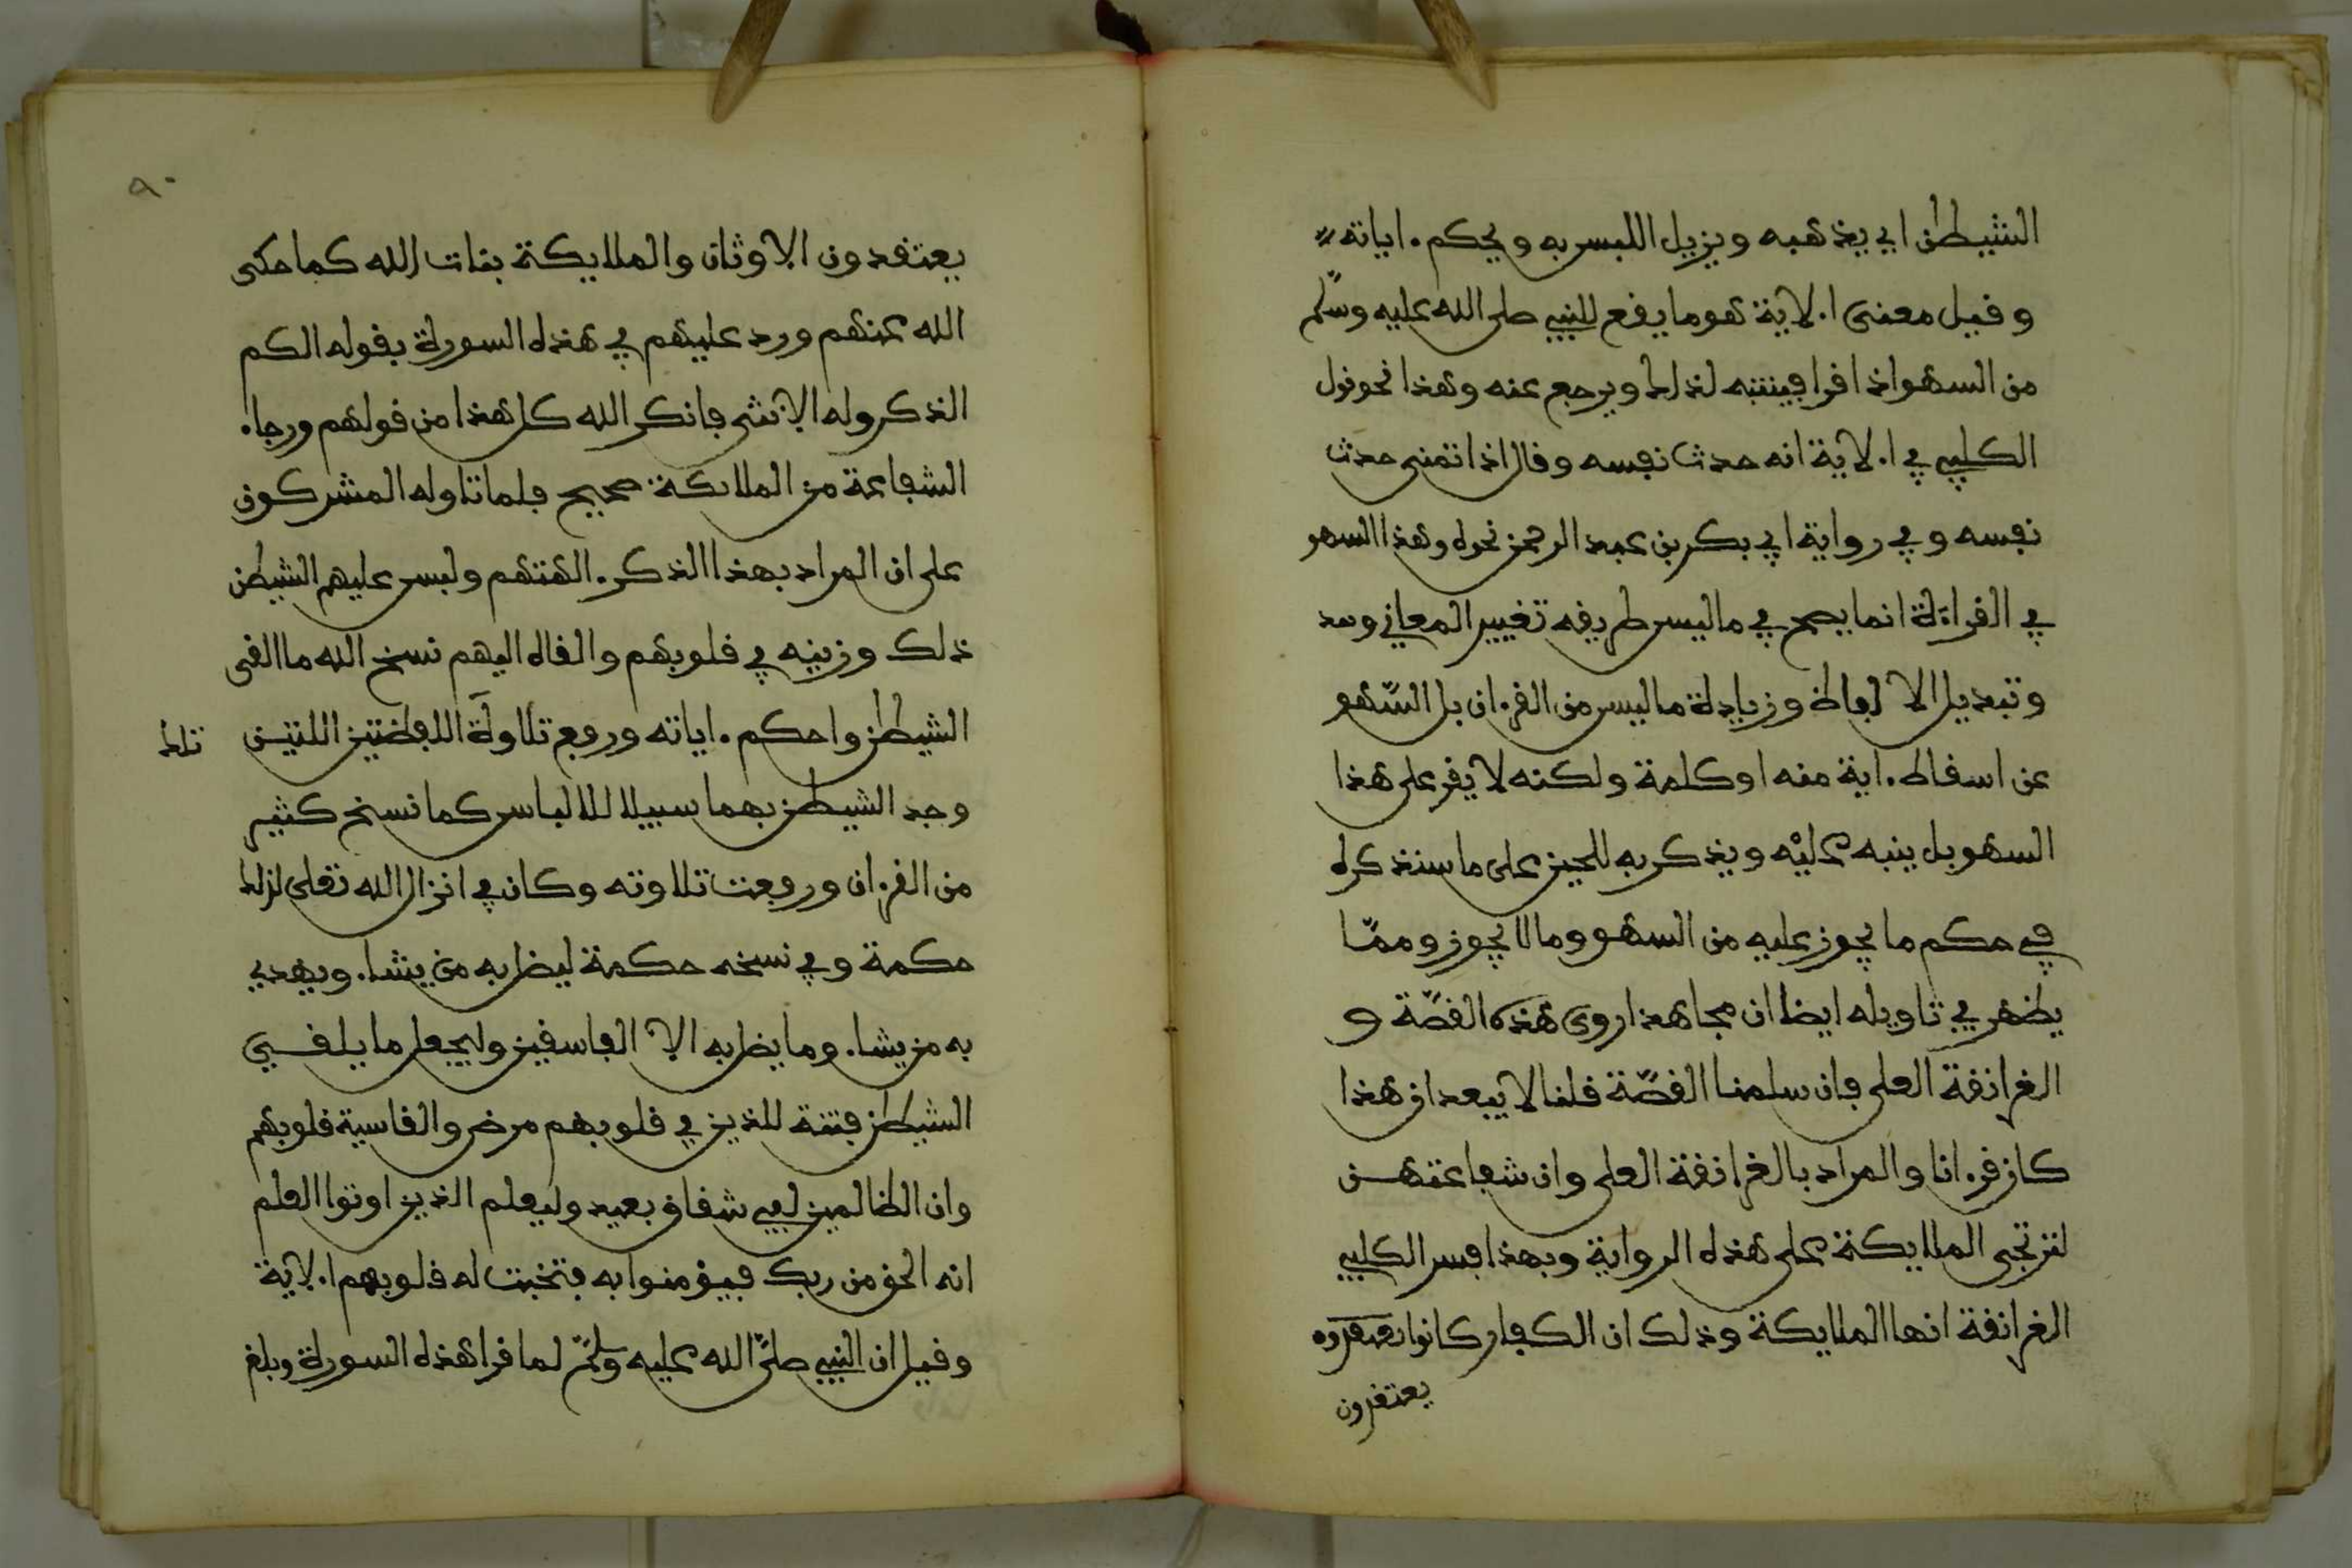 الشيطن اي يذهبه ويزيل اللبس به ويحكم ءاياته
وقيل معنى الاية هو ما يقع للنبي صلى الله عليه وسلم
من السهو اذا قرا فينتبه لذلك ويرجع عنه وهذا نحو قول
الكلبي في الاية انه حدث نفسه وقال اذا تمنى حدث
نفسه وفي رواية ابي بكر بن عبد الرحمن نحوه وهذا السهو
في القراءة انما يصح في ما ليس طريقه تغيير المعاني
وتبديل الالفاظ وزيادة ما ليس من القرءان بل السهو
عن اسقاط ءاية منه او كلمة ولكنه لا يقر على هذا
السهو بل ينبه عليه ويذكر به للحين على ما سنذكره
في حكم ما يجوز عليه من السهو وما لا يجوز ومما
يظهر في تاويله ايضا ان مجاهدا روى هذه القصة و
الغرانقة العلى فان سلمنا القصة قلنا لا يبعد ان هذا
كان قرءانا والمراد بالغرانقة العلى وان شفاعتهن
لترتجى الملايكة على هذه الرواية وبهذا فسر الكلبي
الغرانقة انها الملايكة وذلك ان الكفار كانوا
يعتقدون
٩٠
يعتقدون الاوثان والملايكة بنات الله كما حكى
الله عنهم ورد عليهم في هذه السورة بقوله الكم
الذكر وله الانثى فانكر الله كل هذا من قولهم ورجاء
الشفاعة من الملايكة صحيح فلما تاوله المشركون
على ان المراد بهذا الذكر ءالهتهم ولبس عليهم الشيطن
ذلك وزينه في قلوبهم والقاه اليهم نسخ الله ما القى
الشيطن واحكم ءاياته ورفع تلاوة اللفظتين اللتين
تلك
وجد الشيطن بهما سبيلا للالباس كما نسخ كثير
من القرءان ورفعت تلاوته وكان في انزال الله تعلى لذلك
حكمة وفي نسخه حكمة ليضل به من يشاء ويهدي
به من يشاء وما يضل به الا الفاسقين وليجعل ما يلقي
الشيطن فتنة للذين في قلوبهم مرض والقاسية قلوبهم
وان الظالمين لفي شقاق بعيد وليعلم الذين اوتوا العلم
انه الحق من ربك فيؤمنوا به فتخبت له قلوبهم الاية
وقيل ان النبي صلى الله عليه وسلم لما قرا هذه السورة وبلغ